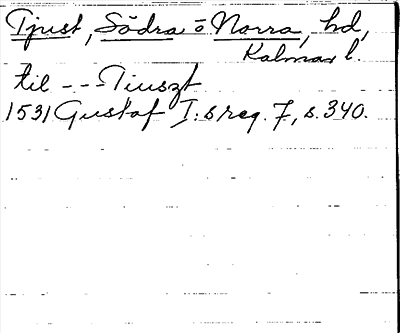 Tjust, Södra o Norra, hd,
Kalmar l.
til --- Tiuszt
1531 Gustaf I:s reg. 7, s. 340.